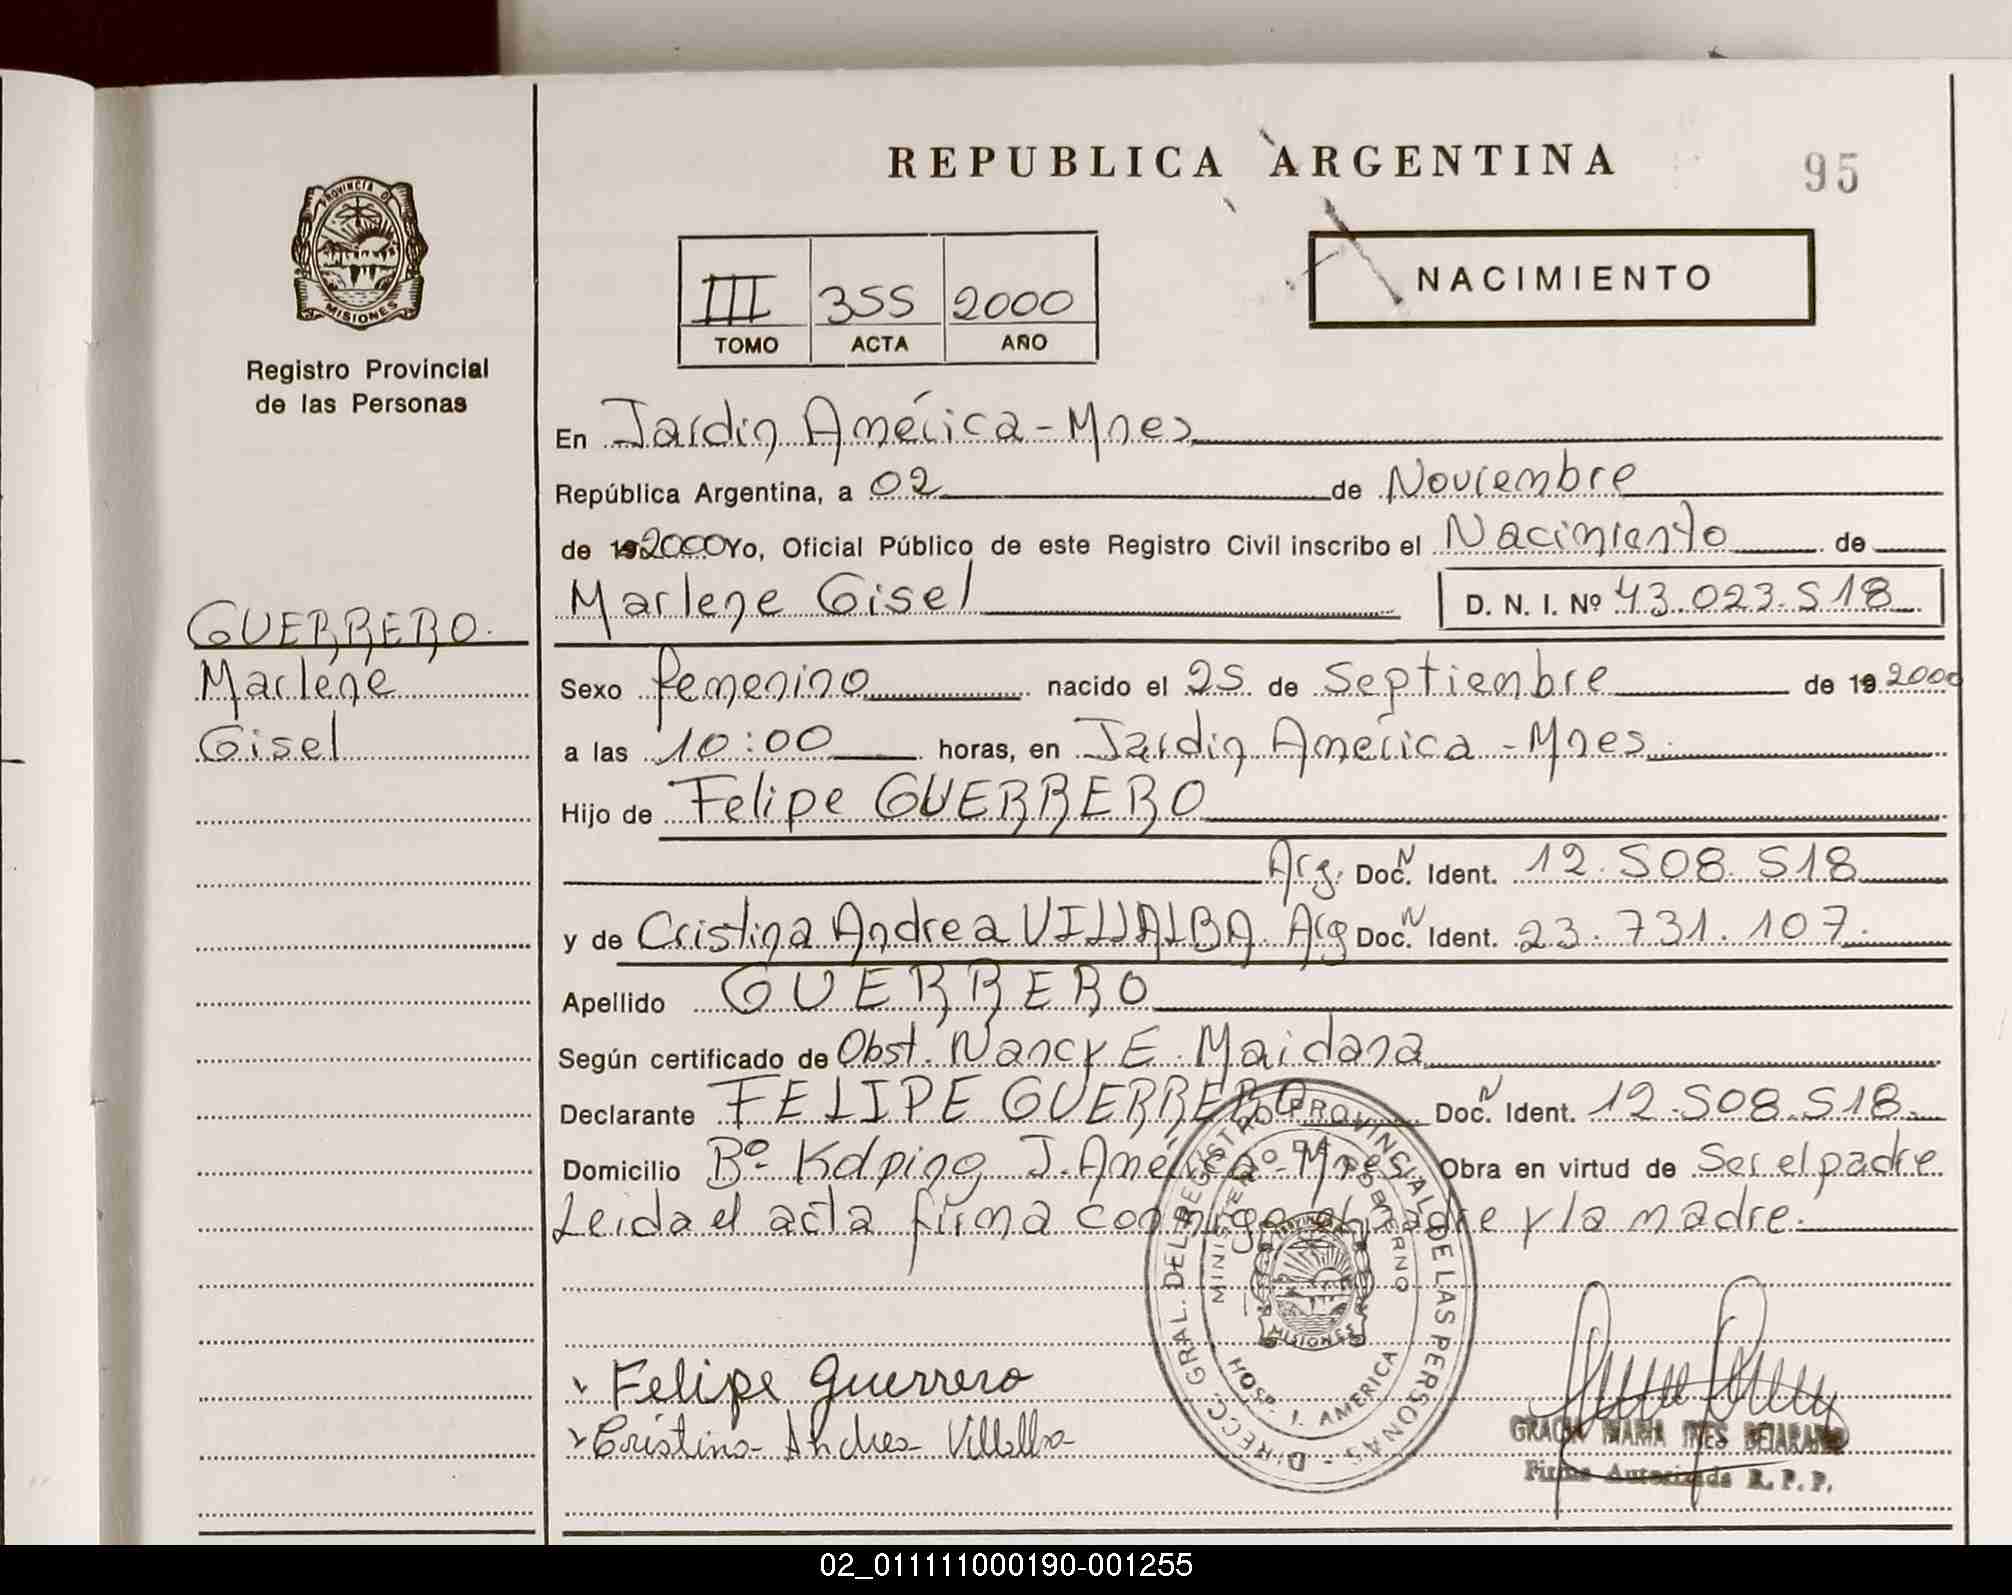 REPUBLICA ARGENTINA
95
PROVINCIA DE
MISIONES
Registro Provincial
de las Personas
III 355 2000
TOMO ACTA AÑO
NACIMIENTO
En Jardin América - Mnes
República Argentina, a 02 de Noviembre
de 192000 Yo, Oficial Público de este Registro Civil inscribo el Nacimiento de
Marlene Gisel D. N. I. Nº 43.023.518
GUERRERO.
Marlene
Gisel
Sexo femenino nacido el 25 de Septiembre de 19 2000
a las 10:00 horas, en Jardin América - Mnes.
Hijo de Felipe GUERRERO
Arg. Doc. N Ident. 12.508.518
y de Cristina Andrea VILLALBA Arg Doc. N Ident. 23.731.107.
Apellido GUERRERO
Según certificado de Obst. Nancy E. Maidana
Declarante FELIPE GUERRERO Doc. N Ident. 12.508.518.
Domicilio Bº Kolping J. América - Mnes Obra en virtud de Ser el padre
Leida el acta firma conmigo el padre y la madre.
DIRECC. GRAL. DEL REGISTRO PROVINCIAL DE LAS PERSONAS
MINISTERIO DE GOBIERNO
MISIONES
J. AMERICA
Felipe Guerrero
Cristina Andrea Villalba
GRACIA MARIA INES BEJARANO
Firma Autorizada R. P. P.
02_011111000190-001255